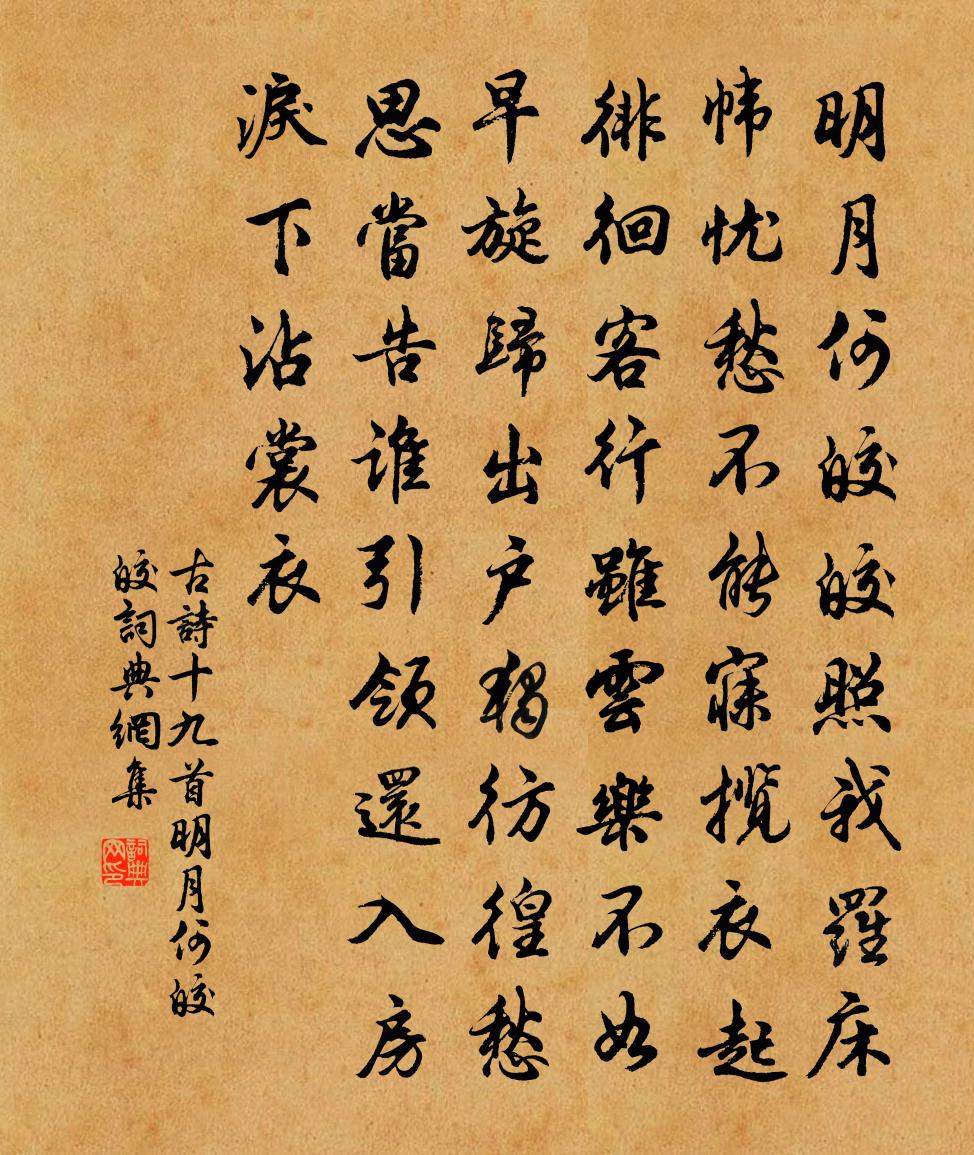 明月何皎皎照我羅床
幃忧愁不能寐揽衣起
徘徊客行雖雲樂不如
早旋歸出户獨彷徨愁
思當告誰引領還入房
淚下沾裳衣
古詩十九首明月何皎
皎詞典網集
詞典
网印